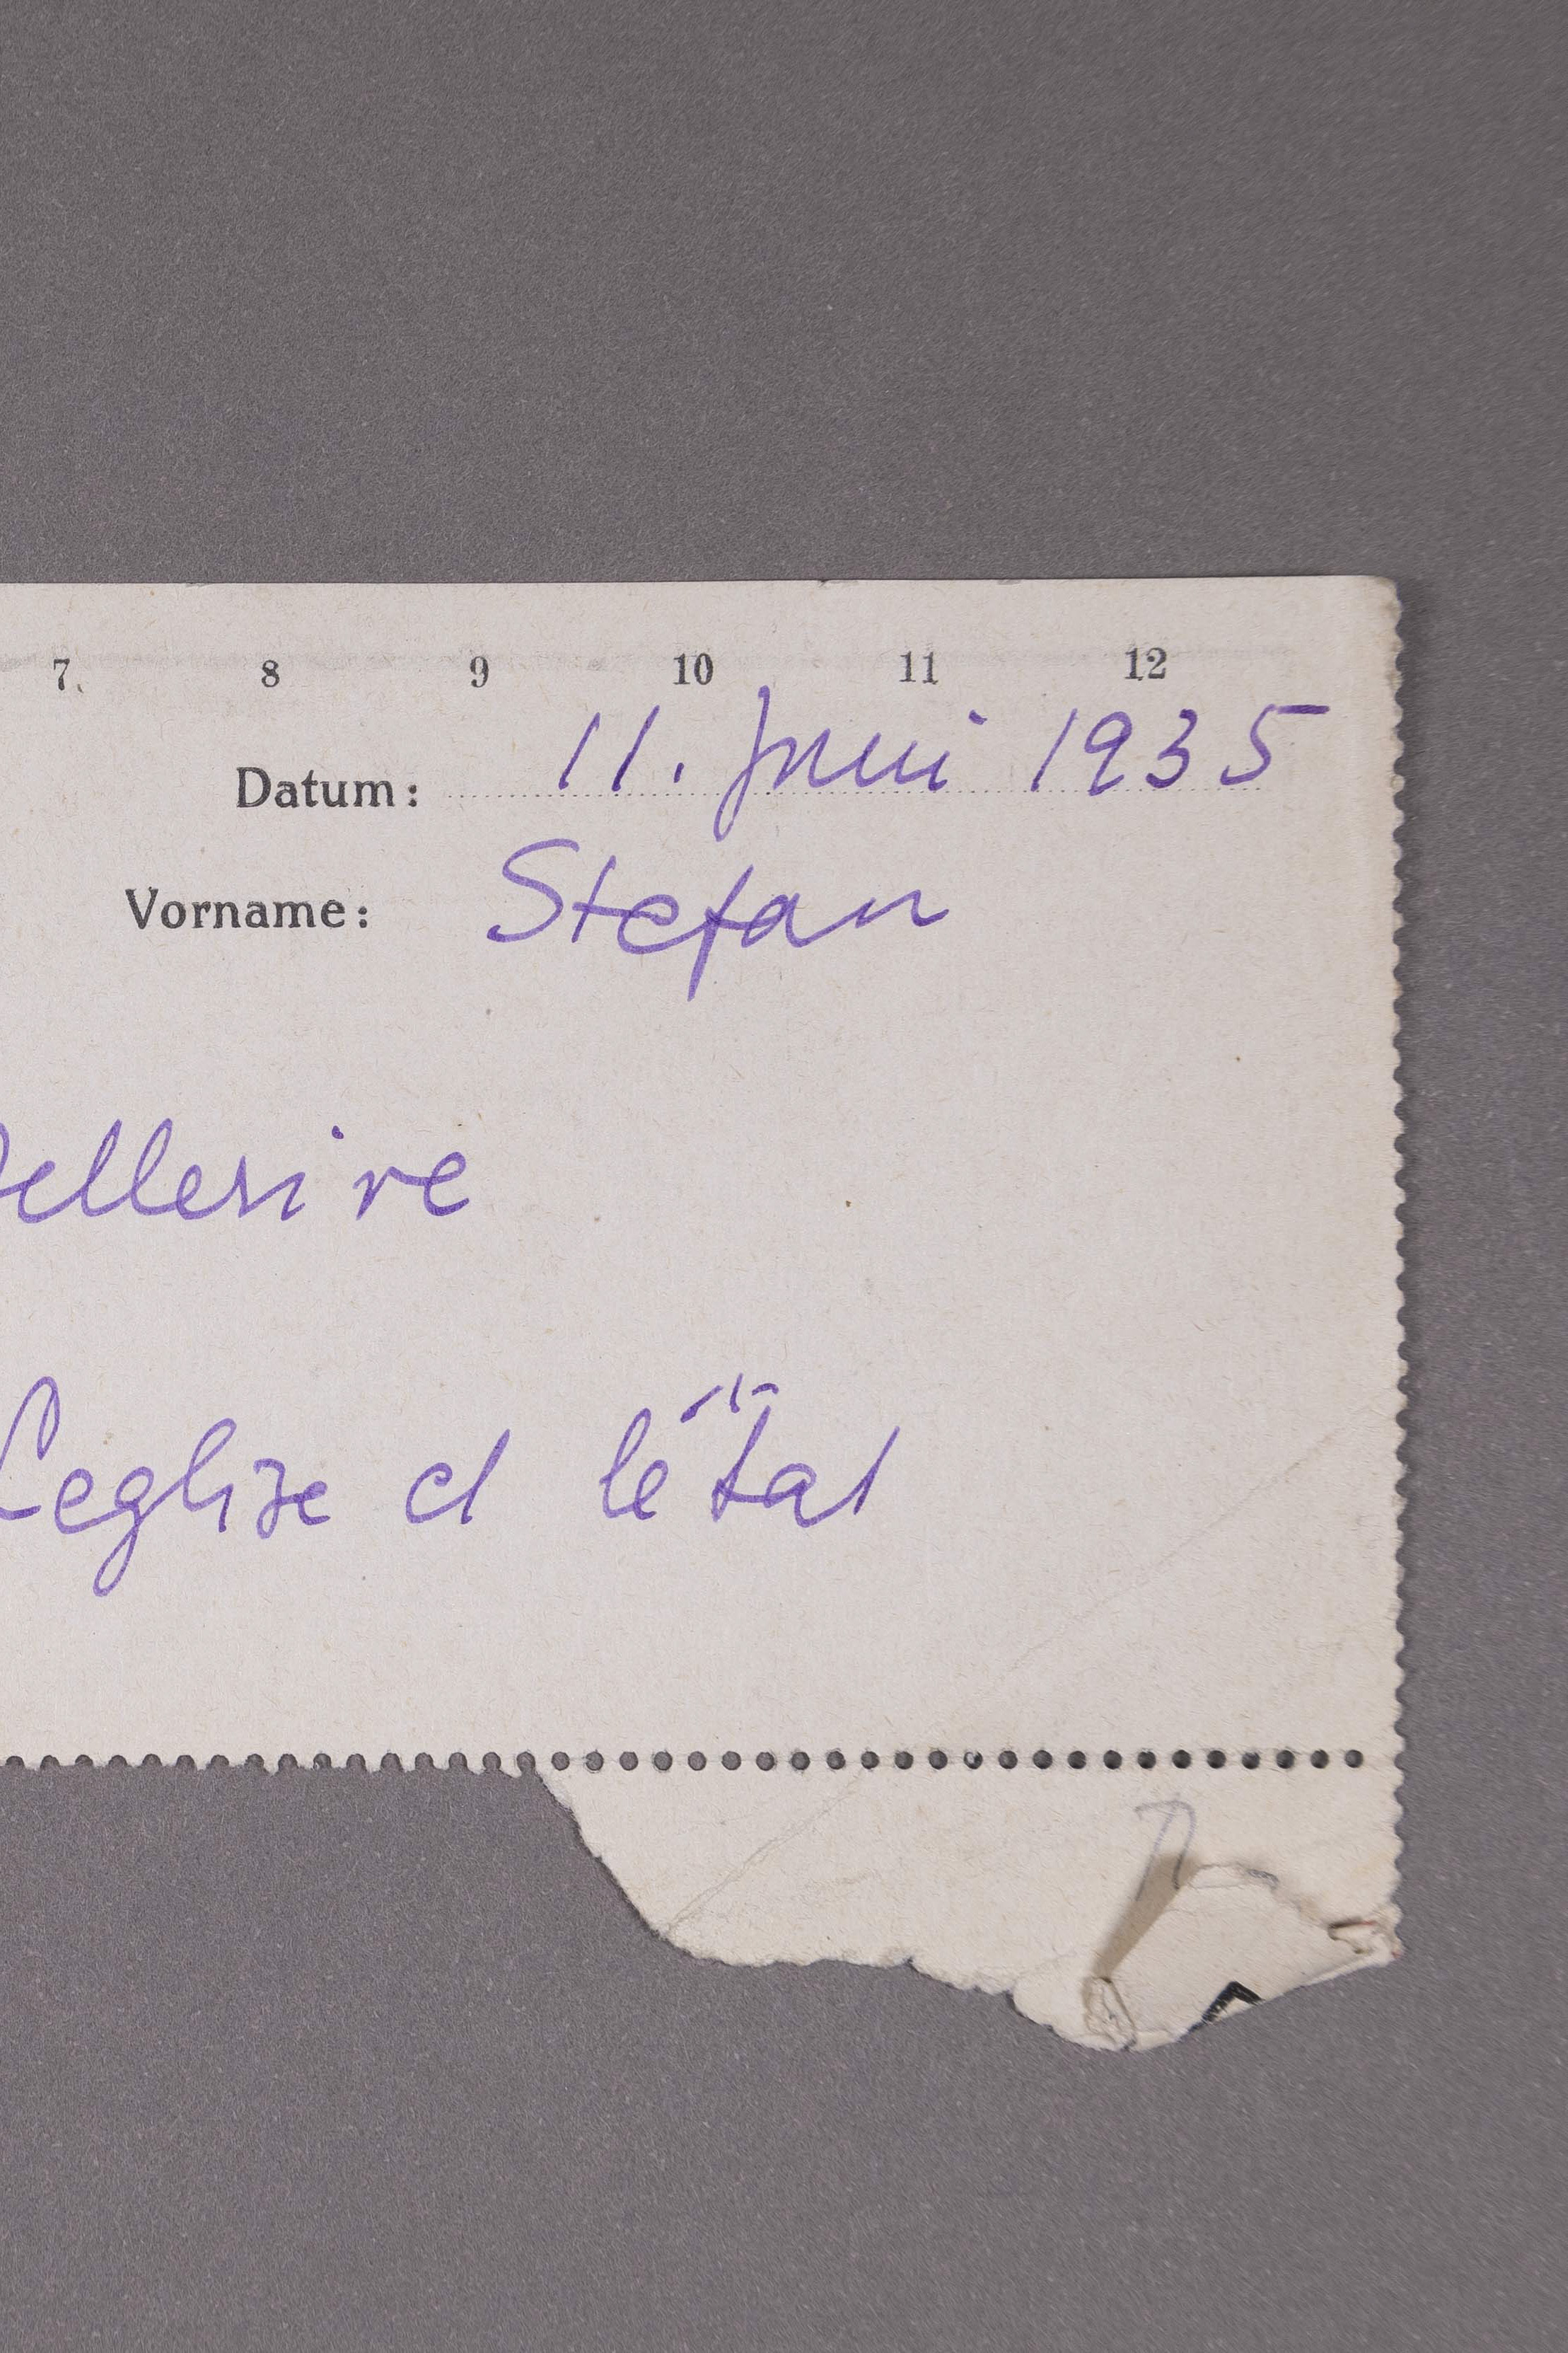 7 8 9 10 11 12
Datum: 11. Juni 1935
Vorname: Stefan
ellerive
L'eglise et l'état